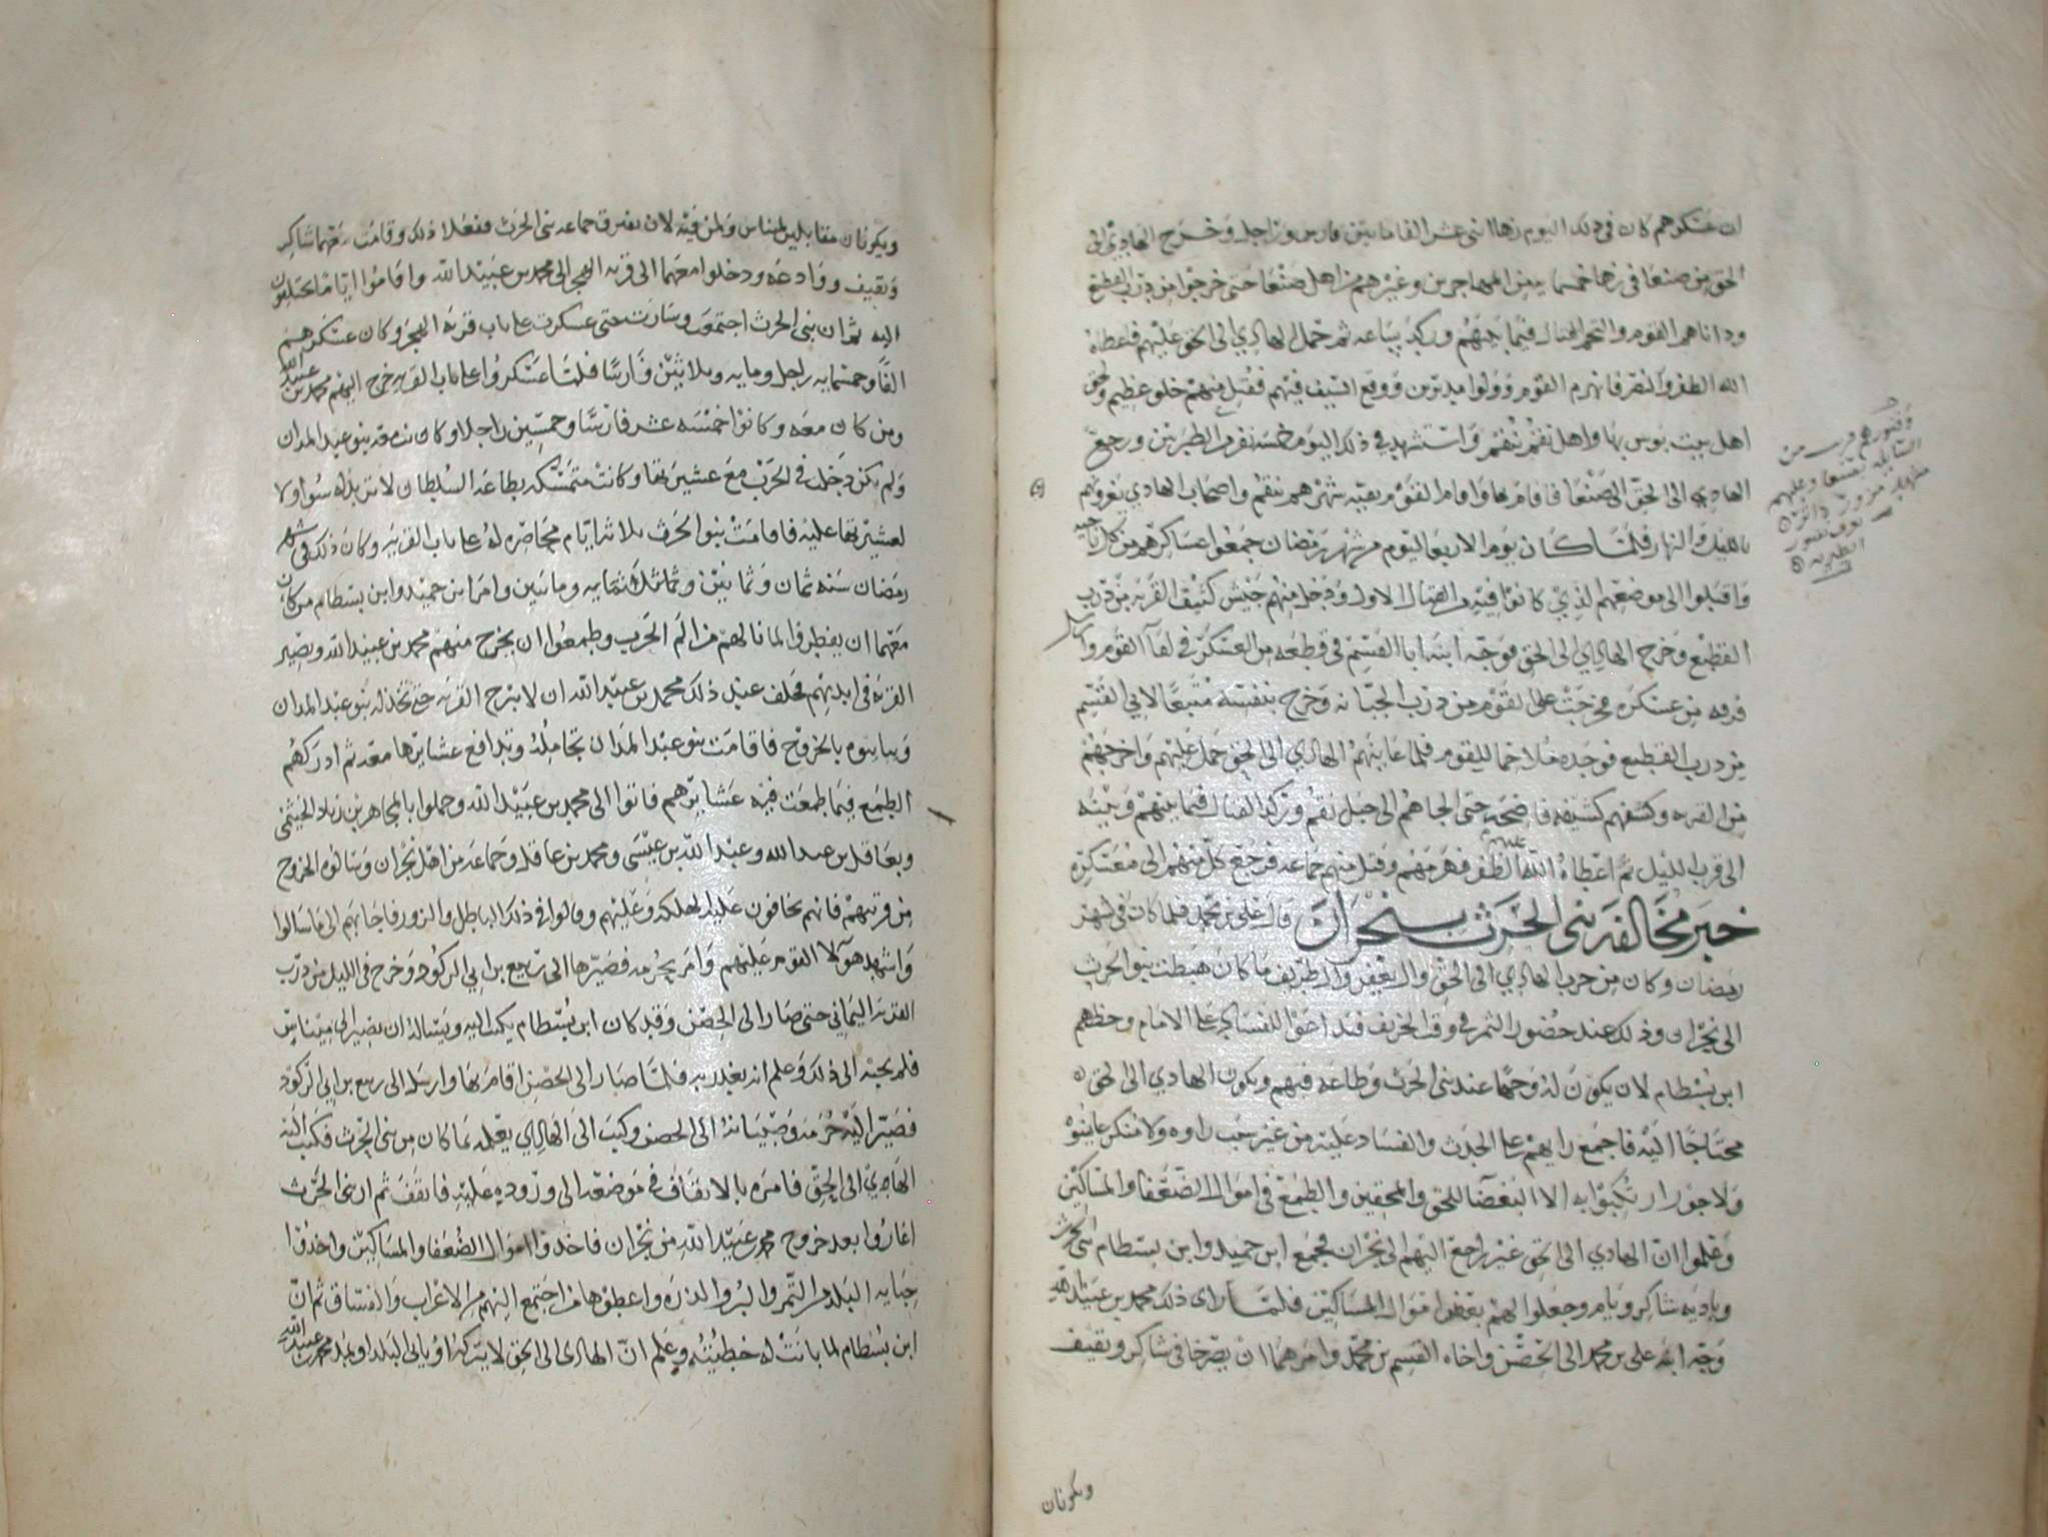 ان عسكرهم كان فى ذلك اليوم زها اثنى عشر الفا ما بين فارس وراجل وخرج الهادي الى
الحق من صنعا فى زها خمسما بين المهاجرين وغيرهم من اهل صنعا حتى خرجوا من درب القطيع
وداناهم القوم والتحم القتال فيما بينهم وركد ساعه ثم حمل الهادي الى الحق عليهم فاعطاه
الله الظفر والنصر فانهزم القوم وولوا مدبرين ووقع السيف فيهم فقتل منهم خلق عظيم ولحق
اهل بيت بوس بها واهل نقم بنقم واستشهد في ذلك اليوم خمسه نفر من الطبريين ورجع
الهادي الى الحق الى صنعا فاقام بها واقام القوم بقيه شهرهم بنقم واصحاب الهادي يغزونهم
بالليل والنهار فلما كان يوم الاربعا ليوم من شهر رمضان جمعوا عساكرهم من كل ناحيه
واقبلوا الى موضعهم الذي كانوا فيه من القتال الاول ودخل منهم جيش كثيف القريه من درب
القطيع وخرج الهادي الى الحق فوجه ابنه ابا القسم فى قطعه من العسكر في لقا القوم وارسل
فرقه من عسكره فخرجت على القوم من درب الجبانه وخرج بنفسه متبعا لابي القسم
من درب القطيع فوجده ملاحما للقوم فلما عاينهم الهادي الى الحق حمل عليهم واخرجهم
من القريه وكشفهم كشيفه فاضحه حتى الجاهم الى جبل نقم وركد القتال فيما بينهم وبينه
الى قرب الليل ثم اعطاه الله عليهم الظفر فهزمهم وقتل منهم جماعه فرجع كل منهم الى معسكره
خبر مخالفه بنى الحرث بنجران قال على بن محمد فلما كان فى شهر
رمضان وكان من حرب الهادي الى الحق وال يعفر وال طريف ما كان هبطت بنو الحرث
الى نجران وذلك عند حضور الثمر في وقت الخريف للفساد على الامام وحظهم
ابن بسطام لان يكون له وجها عند بنى الحرث وطاعه فيهم ويكون الهادي الى الحق
محتاجا اليه فاجمع رايهم على الحدث والفساد عليه من غير سبب راوه ولا منكر عاينوه
ولا جور ارتكبوا به الا البغضا للحق والمحقين والطمع في اموال الضعفا والمساكين
وعلموا ان الهادي الى الحق غير راجع اليهم الى نجران فجمع ابن حميد وابن بسطام بنى الحرث
وباديه شاكر ويام وجعلوا لهم بعض اموال المساكين فلما راى ذلك محمد بن عبيد الله
وجه ابنه على بن محمد الى الحضن واخاه القسم بن محمد وامرهما ان يصرخا فى شاكر وثقيف
ويكونان
وقبورهم قرب من
الطبريه
ويكونان مقابلين لميناس ولمن فيه لان يفترق جماعه بنى الحرث ففعلا ذلك وقامت معهما شاكر
وثقيف ووادعه ودخلوا معهما الى قريه الهجر الى محمد بن عبيد الله واقاموا اياما يختلفون
اليه ثم ان بنى الحرث اجتمعت وسارت حتى عسكرت على باب قريه الهجر وكان عسكرهم
الفا وخمسمايه راجل ومايه وثلاثين فارسا فلما عسكروا على باب القريه خرج اليهم محمد بن عبيد الله
ومن كان معه وكانوا خمسه عشر فارسا وخمسين راجلا وكان معه بنو عبد المدان
ولم يكن دخل في الحرب مع عشيرتها وكانت متمسكه بطاعه السلطان لا تريد له سوا ولا
لعشيرتها عليه فاقامت بنو الحرث ثلاثه ايام محاصره له على باب القريه وكان ذلك فى شهر
رمضان سنه ثمان وثمانين ومائتين وامر ابن حميد وابن بسطام من كان
معهما ان يفطروا لما نالهم من الم الحرب وطمعوا ان يخرج منهم محمد بن عبيد الله وتصير
القريه فى ايديهم فحلف عند ذلك محمد بن عبيد الله ان لا يبرح القريه حتى تخذله بنو عبد المدان
بالخروج فاقامت بنو عبد المدان تجامله وتدافع عشايرها معه ثم ادركهم
الطمع فيما طمعت فيه عشايرهم فاتوا الى محمد بن عبيد الله وحملوا بالمجاهر بن زياد الخيثمى
وبعاقل بن عبد الله وعبد الله بن عيسى ومحمد بن عاقل وجماعه من اهل نجران وسالوه الخروج
من قريتهم فانهم يخافون عليه الهلكه وعليهم وقالوا في ذلك الباطل والزور فاجابهم الى ما سالوا
واشهد هولا القوم عليهم وامر بحرمه فصيرها الى ربيع بن ابي الركود وخرج فى الليل من درب
القريه اليماني حتى صار الى الحضن وقد كان ابن بسطام يكتب اليه ويساله ان يصير الى ميناس
فلم يجبه الى ذلك وعلم انه يغدر به فلما صار الى الحضن اقام بها وارسل الى ربيع بن ابي الركود
فصير اليه حرمه وصبيانه الى الحضن وكتب الى الهادي يعلمه بما كان من بنى الحرث فكتب اليه
الهادي الى الحق فامره بالايقاف فى موضعه الى وروده عليه فاوقف ثم ان بنى الحرث
اغاروا بعد خروج محمد بن عبيد الله من نجران فاخذوا اموال الضعفا والمساكين واخذوا
جبايه البلد من التمر والبر والذره واعطوها من اجتمع اليهم من الاعراب والفساق ثم ان
ابن بسطام لما بانت له خطيئته وعلم ان الهادى الى الحق لا يتركه او ياتى البلد محمد بن عبيد الله